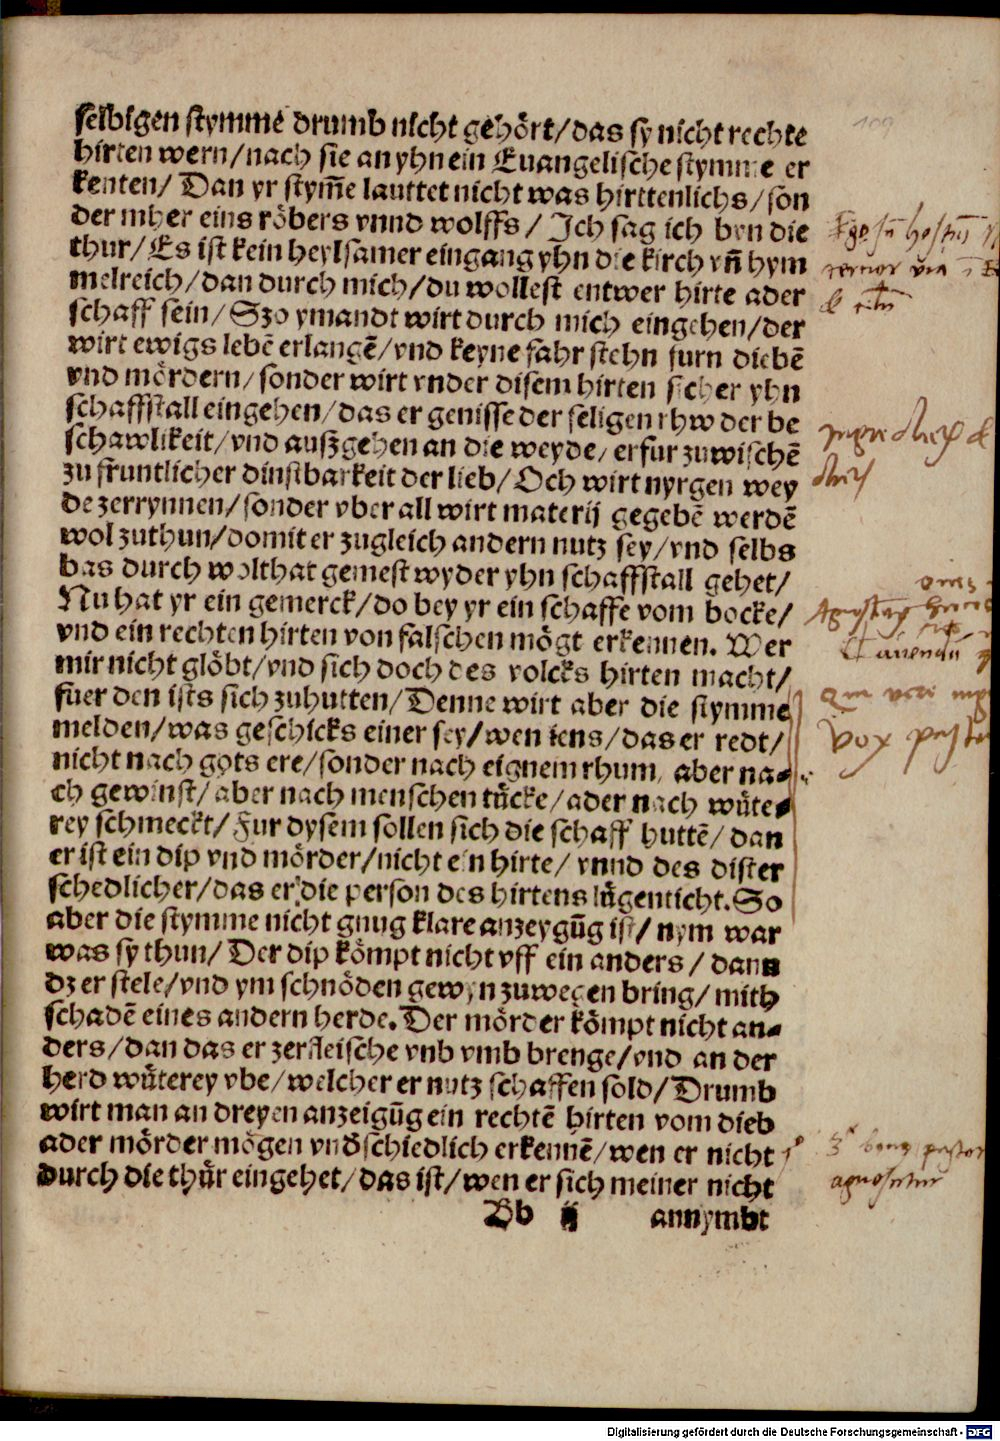 selbigen stymme drumb nicht gehört/das sy nicht rechte
hirten wern/nach sie an yhn ein Euangelische stymme er
kenten/ Dan yr stym̃e lauttet nicht was hirttenlichs/son
der mher eins röbers vnnd wolffs/ Ich sag ich byn die
thur/Es ist kein heylsamer eingang yhn die kirch vñ hym
melreich/dan durch mich/du wollest entwer hirte ader
schaff sein/Szo ymandt wirt durch mich eingehen/der
wirt ewigs lebē erlangē/vnd keyne fahr stehn furn diebē
vnd mördern/sonder wirt vnder disem hirten sicher yhn
schaffstall eingehen/das er genisse der seligen rhw der be
schawlikeit/vnd außgehen an die weyde/erfur zuwischē
zu fruntlicher dinstbarkeit der lieb/Och wirt nyrgen wey
de zerrynnen/sonder vber all wirt materij gegebē werdē
wol zuthun/domit er zugleich andern nutz sey/vnd selbs
bas durch wolthat gemest wyder yhn schaffstall gehet/
Nu hat yr ein gemerck/do bey yr ein schaffe vom bocke/
vnd ein rechten hirten von falschen mögt erkennen. Wer
mir nicht glöbt/vnd sich doch des volcks hirten macht/
fuer den ists sich zuhutten/Denne wirt aber die stymme
melden/was geschicks einer sey/wen iens/das er redt/
nicht nach gots ere/sonder nach eignem rhum/ aber na⸗
ch gewinst/aber nach menschen tücke/ader nach wüte⸗
rey schmeckt/Fur dysem sollen sich die schaff huttē/dan
er ist ein dip vnd mörder/nicht ein hirte/ vnnd des dister
schedlicher/das er die person des hirtens lügenticht.So
aber die stymme nicht gnug klare anzeygūg ist/ nym war
was sy thun/ Der dip kömpt nicht vff ein anders/ dann
dz er stele/vnd ym schnöden gewyn zuwegen bring/mith
schadē eines andern herde.Der mörder kömpt nicht an⸗
ders/dan das er zerfleische vnb vmb brenge/vnd an der
herd wüterey vbe/welcher er nutz schaffen sold/Drumb
wirt man an dreyen anzeigūg ein rechtē hirten vom dieb
ader mörder mögen vnd̄schiedlich erkennē/wen er nicht
durch die thür eingehet/das ist/wen er sich meiner nicht
Bb ij annymbt
109
Ego sū hostiū
vox pasto
agnoscitur
Digitalisierung gefördert durch die Deutsche Forschungsgemeinschaft - DFG